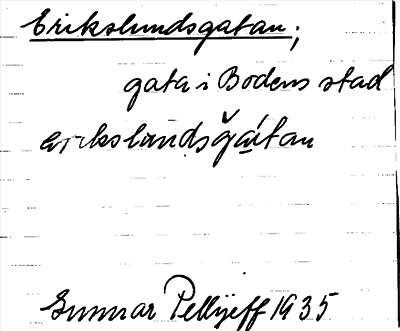 Erikslundsgatan;
gata i Bodens stad
erikslundsğátan
Gunnar Pellijeff 1935